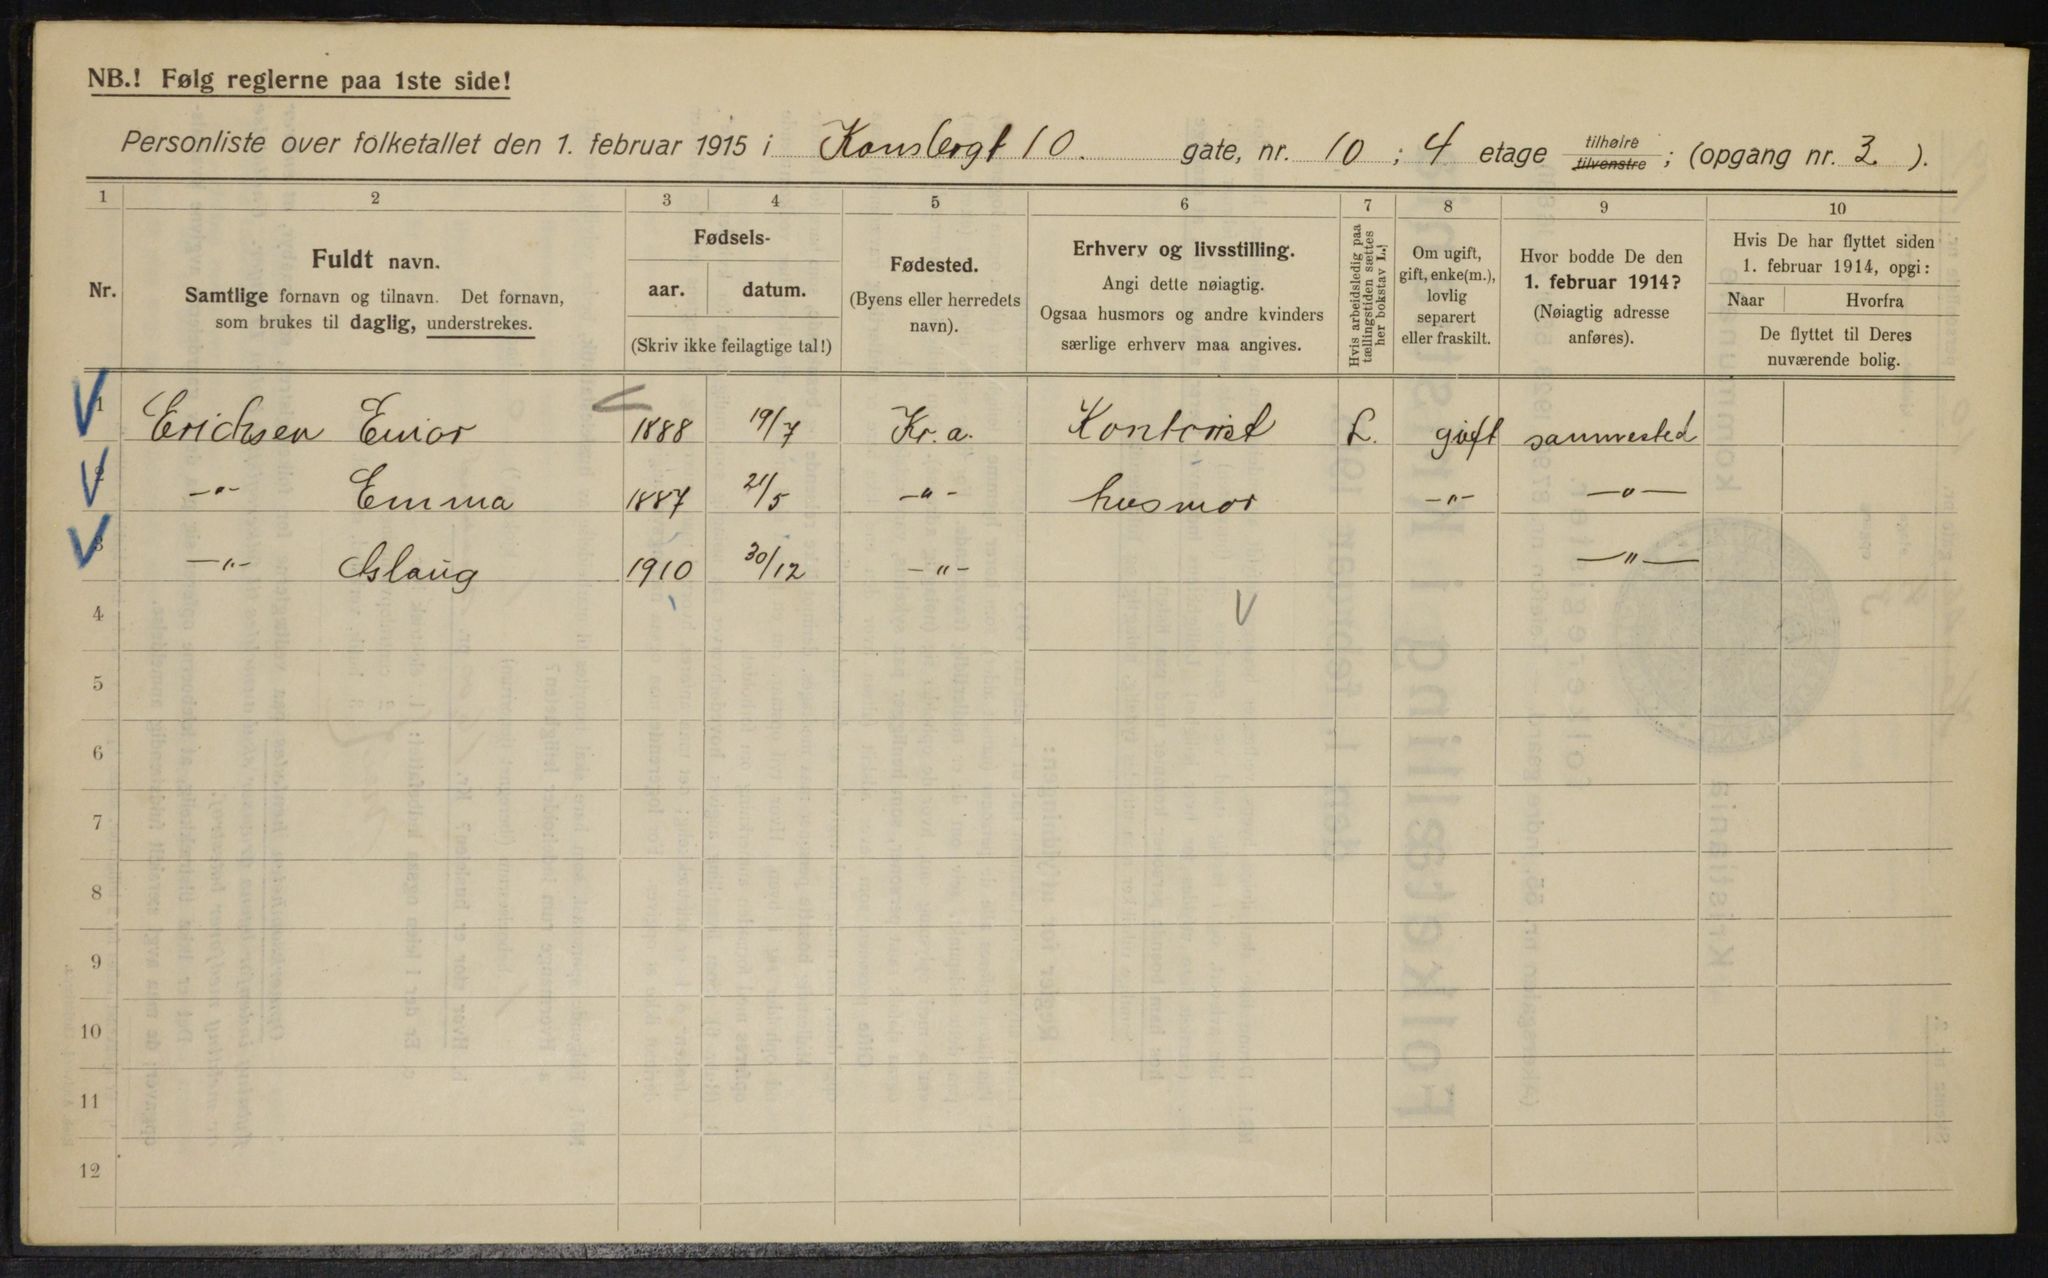 NB.! Følg reglerne paa 1ste side!
Personliste over folketallet den 1. februar 1915 i Konsbergt 10. gate, nr. 10; 4 etage tilhøire tilvenstre; (opgang nr. 3.).
1 2 3 4 5 6 7 8 9 10
Nr.
Fuldt navn.
Samtlige fornavn og tilnavn. Det fornavn,
som brukes til daglig, understrekes.
Fødsels-
aar. datum.
(Skriv ikke feilagtige tal!)
Fødested.
(Byens eller herredets
navn).
Erhverv og livsstilling.
Angi dette nøiagtig.
Ogsaa husmors og andre kvinders
særlige erhverv maa angives.
Hvis arbeidsledig paa
tællingstiden sættes
her bokstav L.!
Om ugift,
gift, enke(m.),
lovlig
separert
eller fraskilt.
Hvor bodde De den
1. februar 1914?
(Nøiagtig adresse
anføres).
Hvis De har flyttet siden
1. februar 1914, opgi:
Naar Hvorfra
De flyttet til Deres
nuværende bolig.
1 Erichsen Einar 1888 19/7 Kr. a. Kontorist L. gift sammested
2 -"- Emma 1887 21/5 -"- husmor -"- -"-
3 -"- Aslaug 1910 30/12 -"- -"-
4
5
6
7
8
9
10
11
12